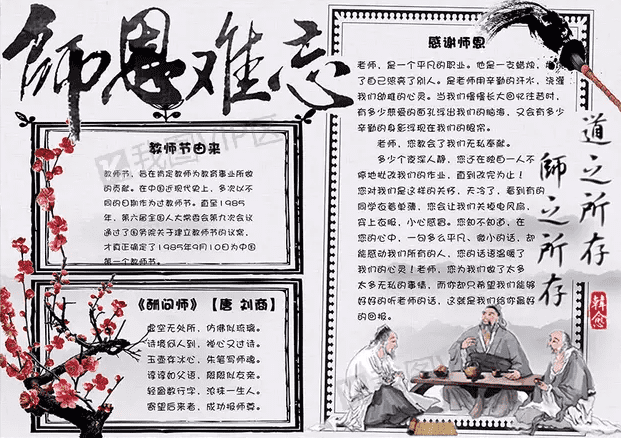 師恩难忘
教师节由来
教师节，旨在肯定教师为教育事业所做
的贡献。在中国近现代史上，多次以不
同的日期作为过教师节。直至1985
年，第六届全国人大常委会第九次会议
通过了国务院关于建立教师节的议案，
才真正确定了1985年9月10日为中国
第一个教师节。
《酬问师》【唐 刘商】
虚空无处所，仿佛似琉璃。
诗境何人到，禅心又过诗。
玉壶存冰心，朱笔写师魂。
谆谆如父语，殷殷似友亲。
轻盈数行字，浓抹一生人。
寄望后来者，成功报师尊。
感谢师恩
老师，是一个平凡的职业。他是一支蜡烛，
了自己照亮了别人。是老师用辛勤的汗水，浇灌
我们幼稚的心灵。当我们慢慢长大回忆往昔时，
有多少慈爱的面孔浮出我们的脑海，又会有多少
辛勤的身影浮现在我们的眼帘。
老师，您教会了我们无私奉献。
多少个夜深人静，您还在暗自一人不
停地批改我们的作业，直到改完为止！
您对我们是这样的关怀，天冷了，看到有的
同学衣着单薄，您会让我们关掉电风扇，
穿上衣服，小心感冒。您知不知道，在
您的心中，一句多么平凡、微小的话，却
能感动我们所有的人，您的话语温暖了
我们的心灵！老师，您为我们做了太多
太多无私的事情，而你却只希望我们能够
好好的听老师的话，这就是我们给你最好
的回报。
道之所存
師之所存
韓愈
我图VIP区